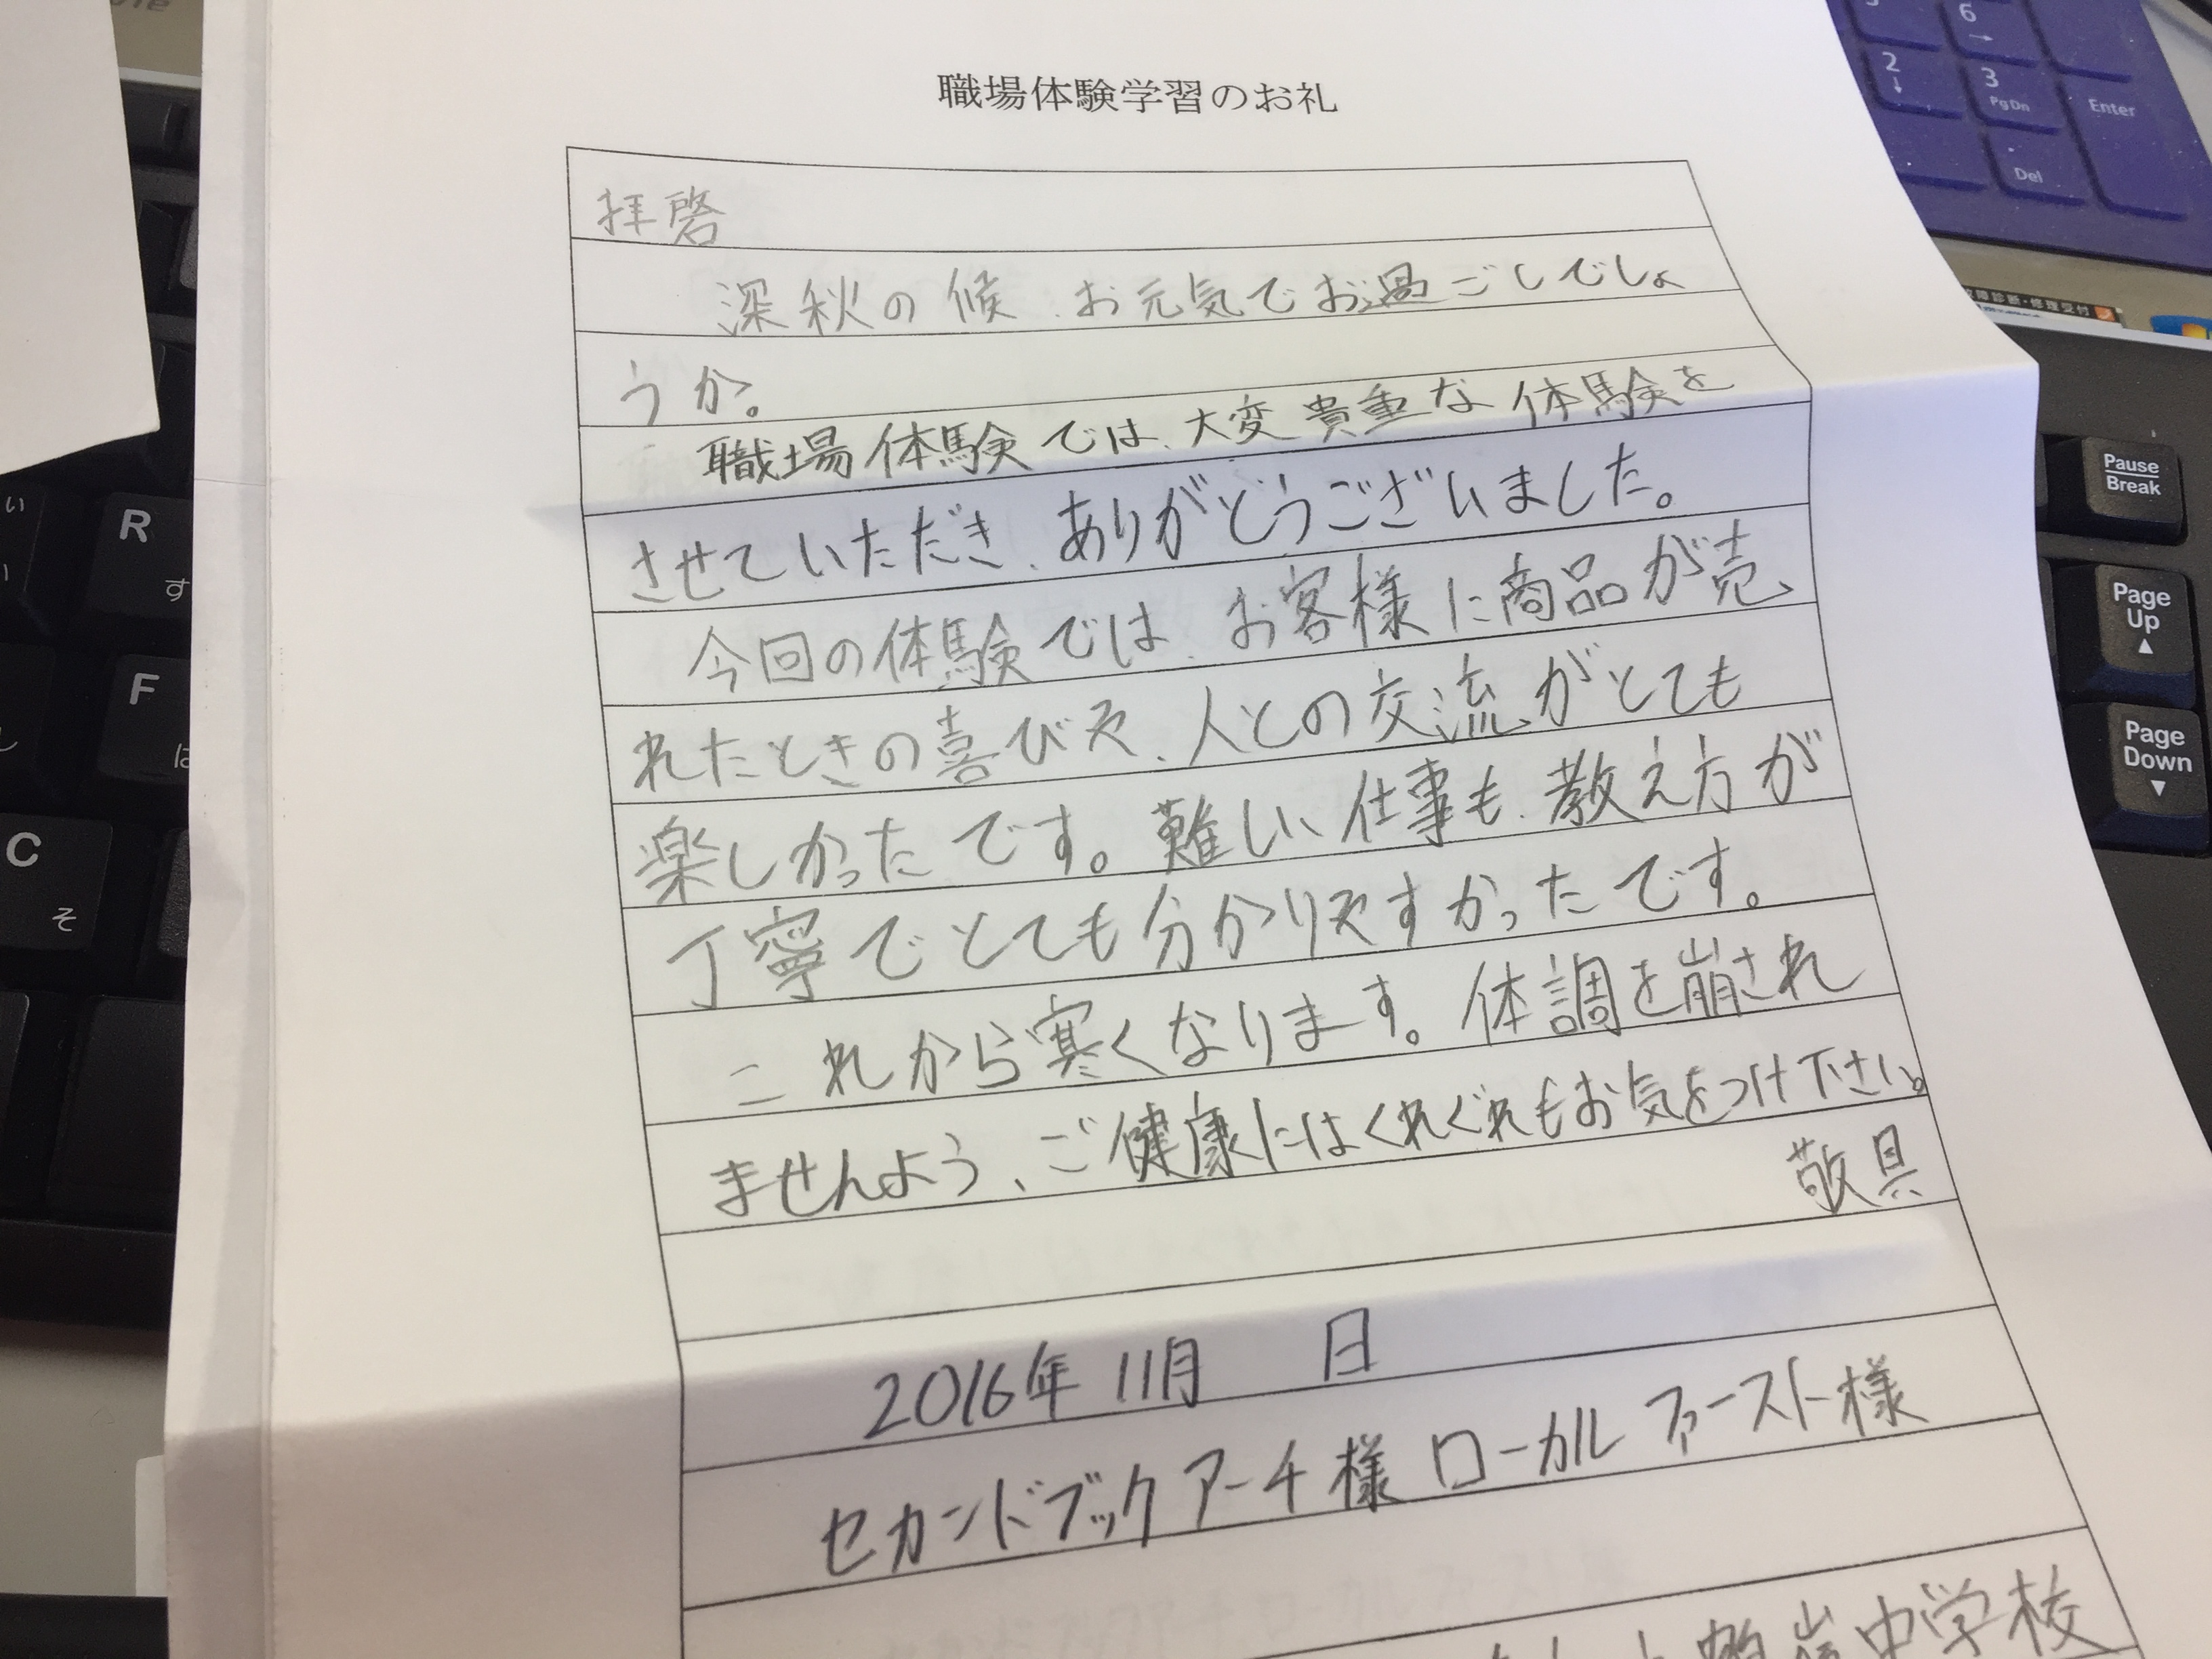 職場体験学習のお礼
拝啓
深秋の候、お元気でお過ごしでしょ
うか。
職場体験では、大変貴重な体験を
させていただき、ありがとうございました。
今回の体験では、お客様に商品が売
れたときの喜びや、人との交流がとても
楽しかったです。難しい仕事も、教え方が
丁寧でとても分かりやすかったです。
これから寒くなります。体調を崩され
ませんよう、ご健康にはくれぐれもお気をつけ下さい。
敬具
2016年 11月 日
セカンドブックアーチ様 ローカルファースト様
中学校
6
→
2
↓
3
PgDn
Enter
Del
障診断・修理受付
Pause
Break
Page
Up
▲
Page
Down
▼
い
R
す
F
は
C
そ